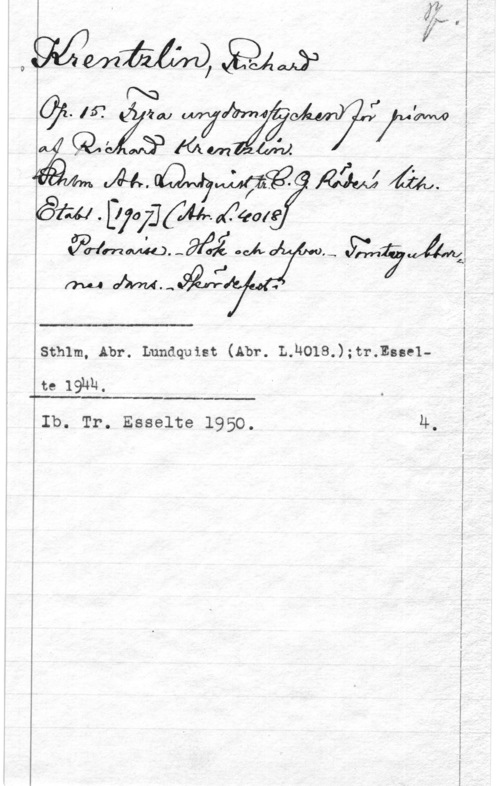 Krentzlin, Richard
Op. 15. Fyra ungdomsstycken för piano
af Richard Krentzlin.
Sthlm Abr. Lundquist, tr. C. G. Röder's lith.
Etabl. [1907] (Abr. L. 4018)
Polonaise. - Hök och dufva. - Tomtegubbar-
nes dans. - Skördefest.
Sthlm, Abr. Lundquist (Abr. L.4018.);tr.Essel-
te 1944.
Ib. Tr. Esselte 1950. 4.